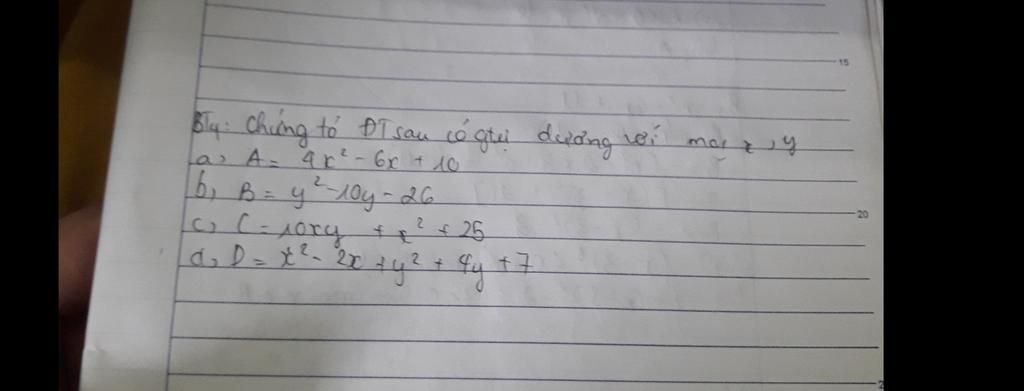 15
BT4: Chứng tỏ ĐT sau có gtrị dương với mọi x, y
a, A = 4x² - 6x + 10
b, B = y² - 10y - 26
20
c, C = 10xy + x² + 25
d, D = x² - 2x + y² + 4y + 7